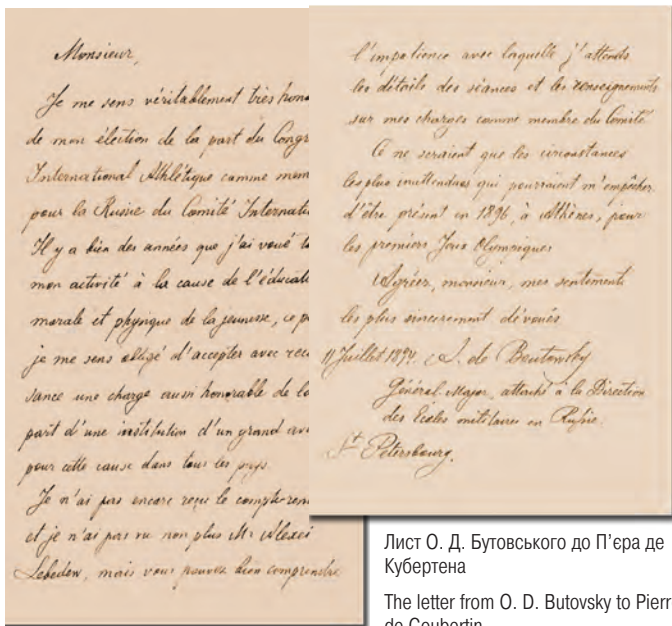 Monsieur,
Je me sens véritablement très hono
de mon élection de la part du Congr
International Athlétique comme mem
pour la Russie du Comité Internatio
Il y a bien des années que j'ai voué to
mon activité à la cause de l'éducati
morale et physique de la jeunesse, ce p
je me sens obligé d'accepter avec reco
sance une charge aussi honorable de la
part d'une institution d'un grand ave
pour cette cause dans tous les pays.
Je n'ai pas encore reçu le compte-ren
et je n'ai pas vu non plus Mr Alexei
Lebedew, mais vous pouvez bien comprendre
l'impatience avec laquelle j'attends
les détails des séances et les renseignements
sur mes charges comme membre du Comité
Ce ne seraient que les circonstances
les plus inattendues qui pourraient m'empêcher
d'être présent en 1896, à Athènes, pour
les premiers Jeux Olympiques
Agréez, monsieur, mes sentiments
les plus sincèrement dévoués
11 Juillet 1894. A. de Boutowsky
Général-Major, attaché à la Direction
des Ecoles militaires en Russie.
St Petersbourg.
Лист О. Д. Бутовського до П’єра де
Кубертена
The letter from O. D. Butovsky to Pierr
de Coubertin